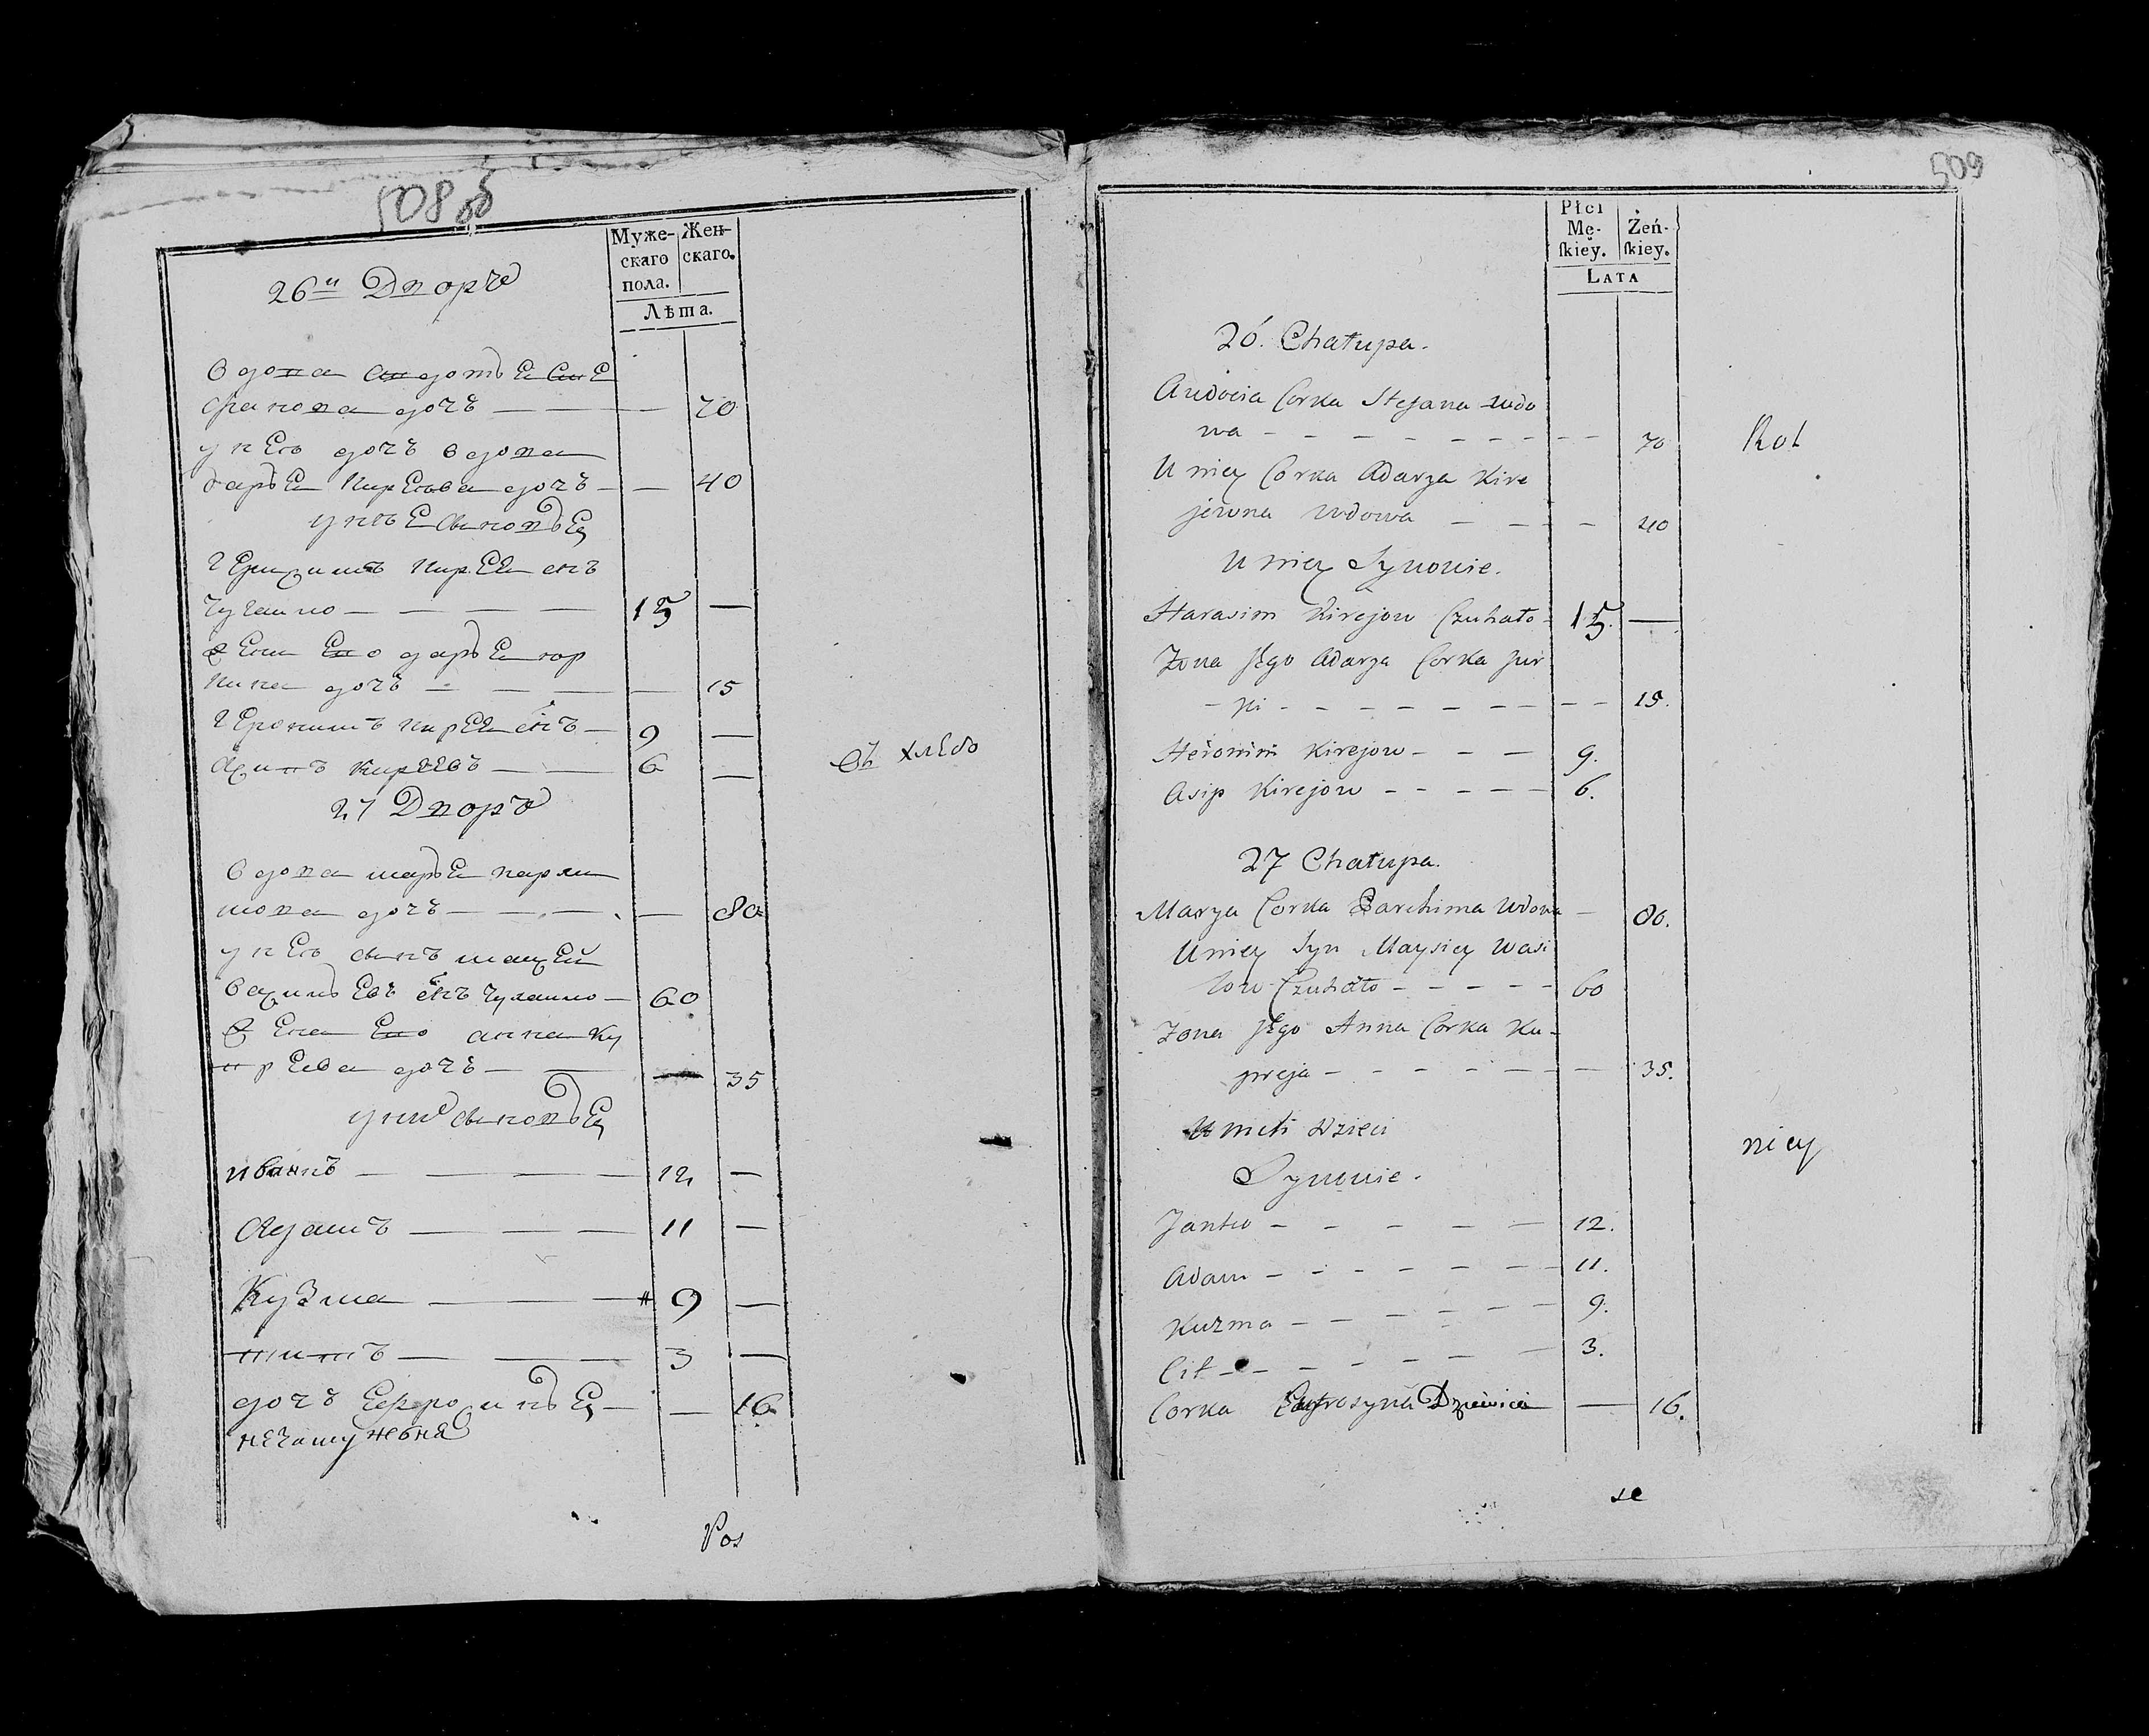 508 об
Муже-
скаго
пола.
Жен-
скаго.
Лѣта.
26й Дворъ
вдова авдотьЕ СтЕ
фанова дочъ — — — 70
у нЕю дочъ вдова
дарьЕ КирЕева дочъ — — 40
у нЕЕ сыновьЕ
гЕрасимъ КирЕЕв снъ
Чухало — — — — 15 —
жЕна Его дарьЕ Юр
кина дочъ — — — — 15
гЕронимъ КирЕЕв снъ — 9 —
Асипъ КирЕЕвъ — — 6 —
27 Дворъ
вдова марьЕ пархи
мова дочъ — — — — 80
у нЕю сынъ мосЕй
василЕвъ снъ Чухало — 60
жЕна Его анна Ку
прЕева дочъ — — — 35
у них сыновьЕ
иванъ — — — 12 —
Адамъ — — — 11 —
Кузма — — — 9 —
титъ — — — 3 —
дочъ ЕфросиньЕ — — 16
незамужьняя
въ хлЕбо
Pos
509
Płci
Mę-
skiey.
Żeń-
skiey.
LATA
26. Chałupa.
Audocia Corka Stefana wdo
wa — — — — — — — — 70
U niey Corka Adarya Kire
jewna wdowa — — — — 40
U niey Synowie.
Harasim Kirejow Czuhało — 15. —
Zona Jego Adarya Corka Jur
— ki — — — — — — — — 15.
Heronim Kirejow — — — 9.
Asip Kirejow — — — — — 6.
27 Chałupa.
Marya Corka Parchima Wdowa — 80.
U niey Syn Maysiey Wasi
low Czuhało — — — — — 60
Zona Jego Anna Corka Ku-
preja — — — — — — — 35.
U nich Dzieci
Synowie.
Janko — — — — — 12.
Adam — — — — — — 11.
Kuzma — — — — — 9.
Cit — — — — — — 3.
Corka Eufrosyna Dziewica — 16.
Rol
niey
se